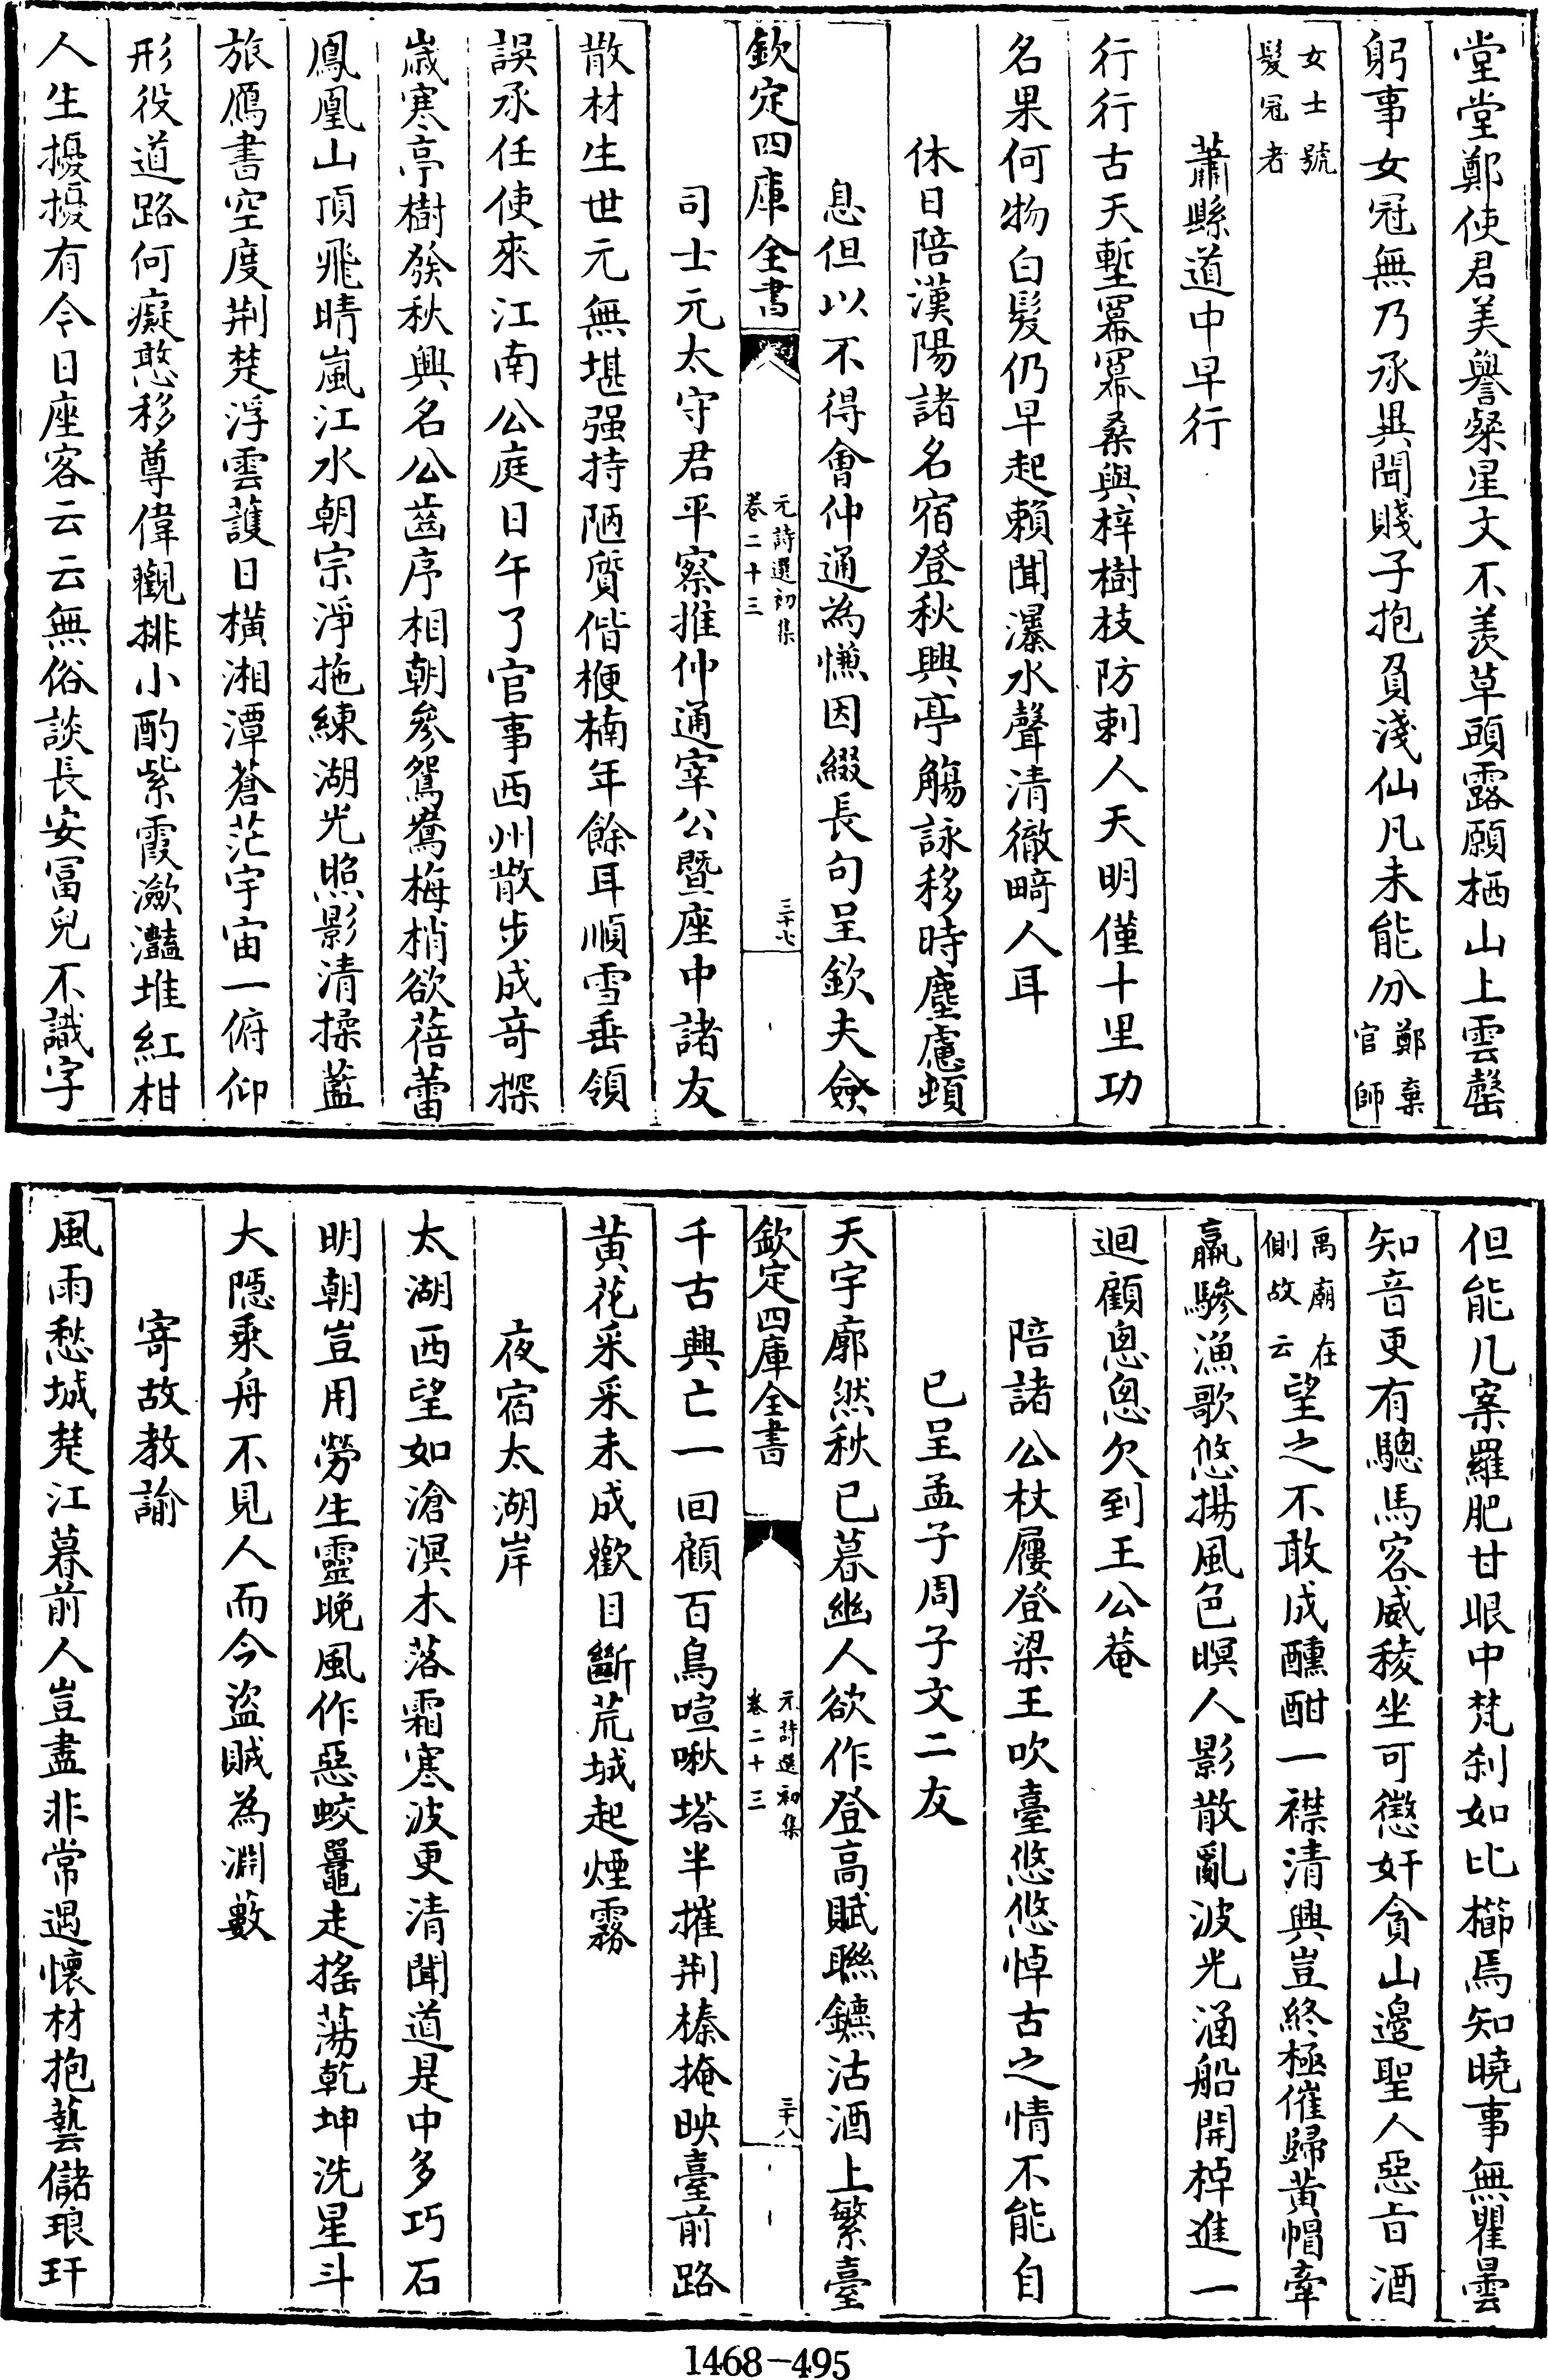 堂堂鄭使君美譽粲星文不羨草頭露願栖山上雲罄
躬事女冠無乃承異聞賤子抱負淺仙凡未能分鄭棄官師
女士號髮冠者
蕭縣道中早行
行行古天塹冪冪桑與梓樹枝防刺人天明僅十里功
名果何物白髮仍早起賴聞瀑水聲清徹畸人耳
休日陪漢陽諸名宿登秋興亭觴詠移時塵慮頓
息但以不得會仲通為慊因綴長句呈欽夫僉
欽定四庫全書
元詩選初集
卷二十三
三十七
司士元太守君平察推仲通宰公暨座中諸友
散材生世元無堪强持陋質偕楩楠年餘耳順雪垂領
誤承任使來江南公庭日午了官事西州散步成奇探
歲寒亭樹發秋興名公齒序相朝參鴛鴦梅梢欲蓓蕾
鳳凰山頂飛晴嵐江水朝宗淨拖練湖光照影清揉藍
旅鴈書空度荆楚浮雲護日橫湘潭蒼茫宇宙一俯仰
形役道路何癡憨移尊偉觀排小酌紫霞瀲灩堆紅柑
人生擾擾有今日座客云云無俗談長安冨兒不識字
但能几案羅肥甘眼中梵刹如比櫛焉知曉事無瞿曇
知音更有驄馬客威稜坐可懲奸貪山邊聖人惡旨酒
禹廟在側故云望之不敢成醺酣一襟清興豈終極催歸黃帽牽
羸驂漁歌悠揚風色暝人影散亂波光涵船開棹進一
迴顧恖恖欠到王公菴
陪諸公杖屨登梁王吹臺悠悠悼古之情不能自
已呈孟子周子文二友
天宇廓然秋已暮幽人欲作登高賦聯鑣沽酒上繁臺
欽定四庫全書
元詩選初集
卷二十三
三十八
千古興亡一回顧百鳥喧啾塔半摧荆榛掩映臺前路
黃花采采未成歡目斷荒城起煙霧
夜宿太湖岸
太湖西望如滄溟木落霜寒波更清聞道是中多巧石
明朝豈用勞生靈晚風作惡蛟鼉走搖蕩乾坤洗星斗
大隱乘舟不見人而今盜賊為淵藪
寄故教諭
風雨愁城楚江暮前人豈盡非常遇懷材抱藝儲琅玕
1468-495